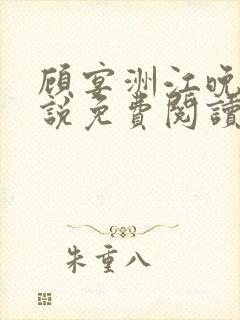 顾宴洲江晚
説免費閱讀
朱重八